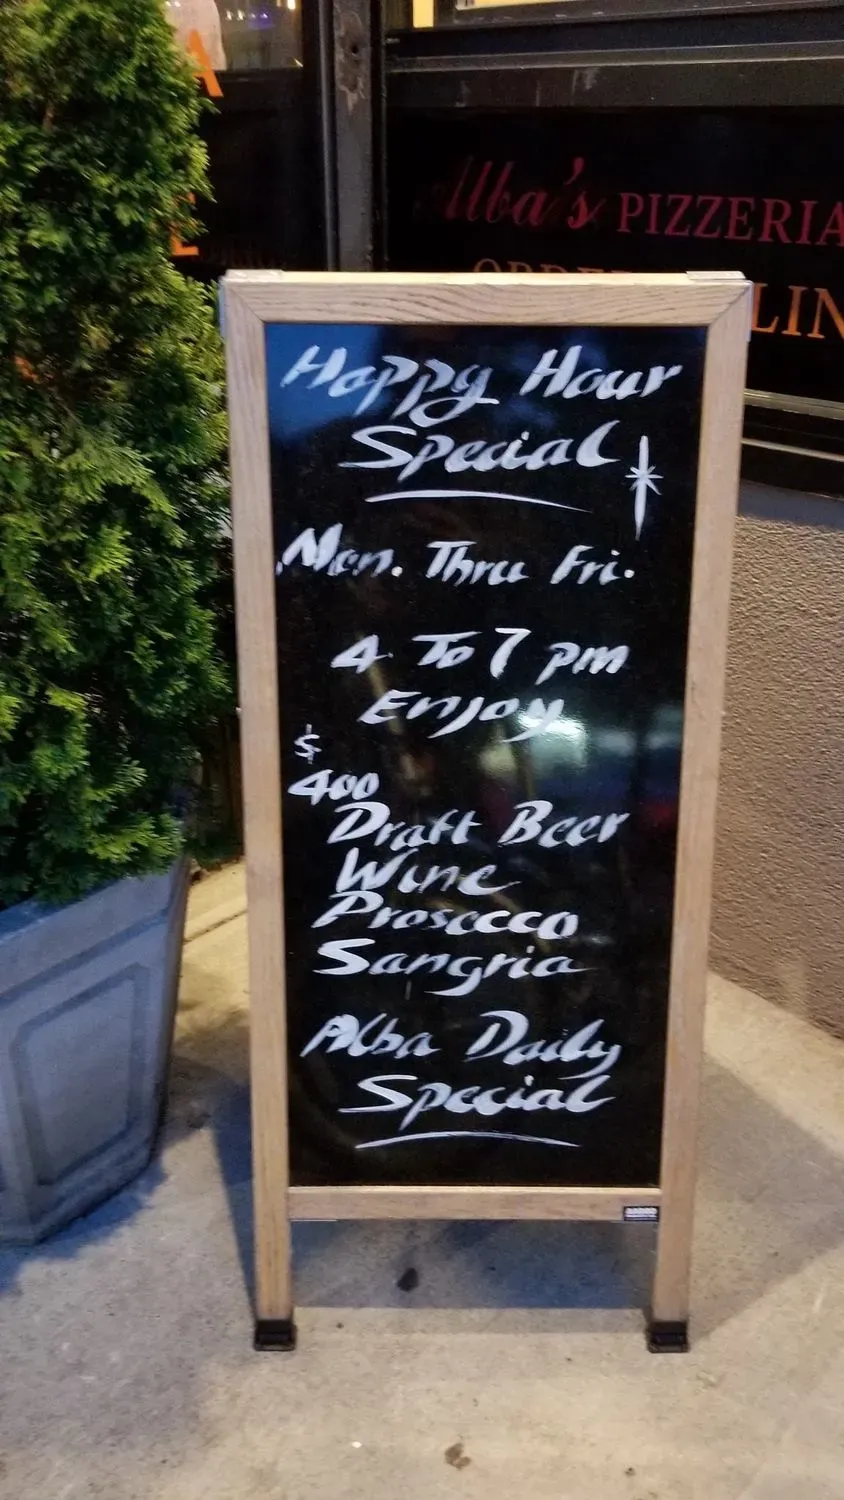 Alba's PIZZERIA
LIN
Happy Hour
Special
Mon. Thru Fri.
4 To 7 pm
Enjoy
$
400
Draft Beer
Wine
Prosecco
Sangria
Alba Daily
Special